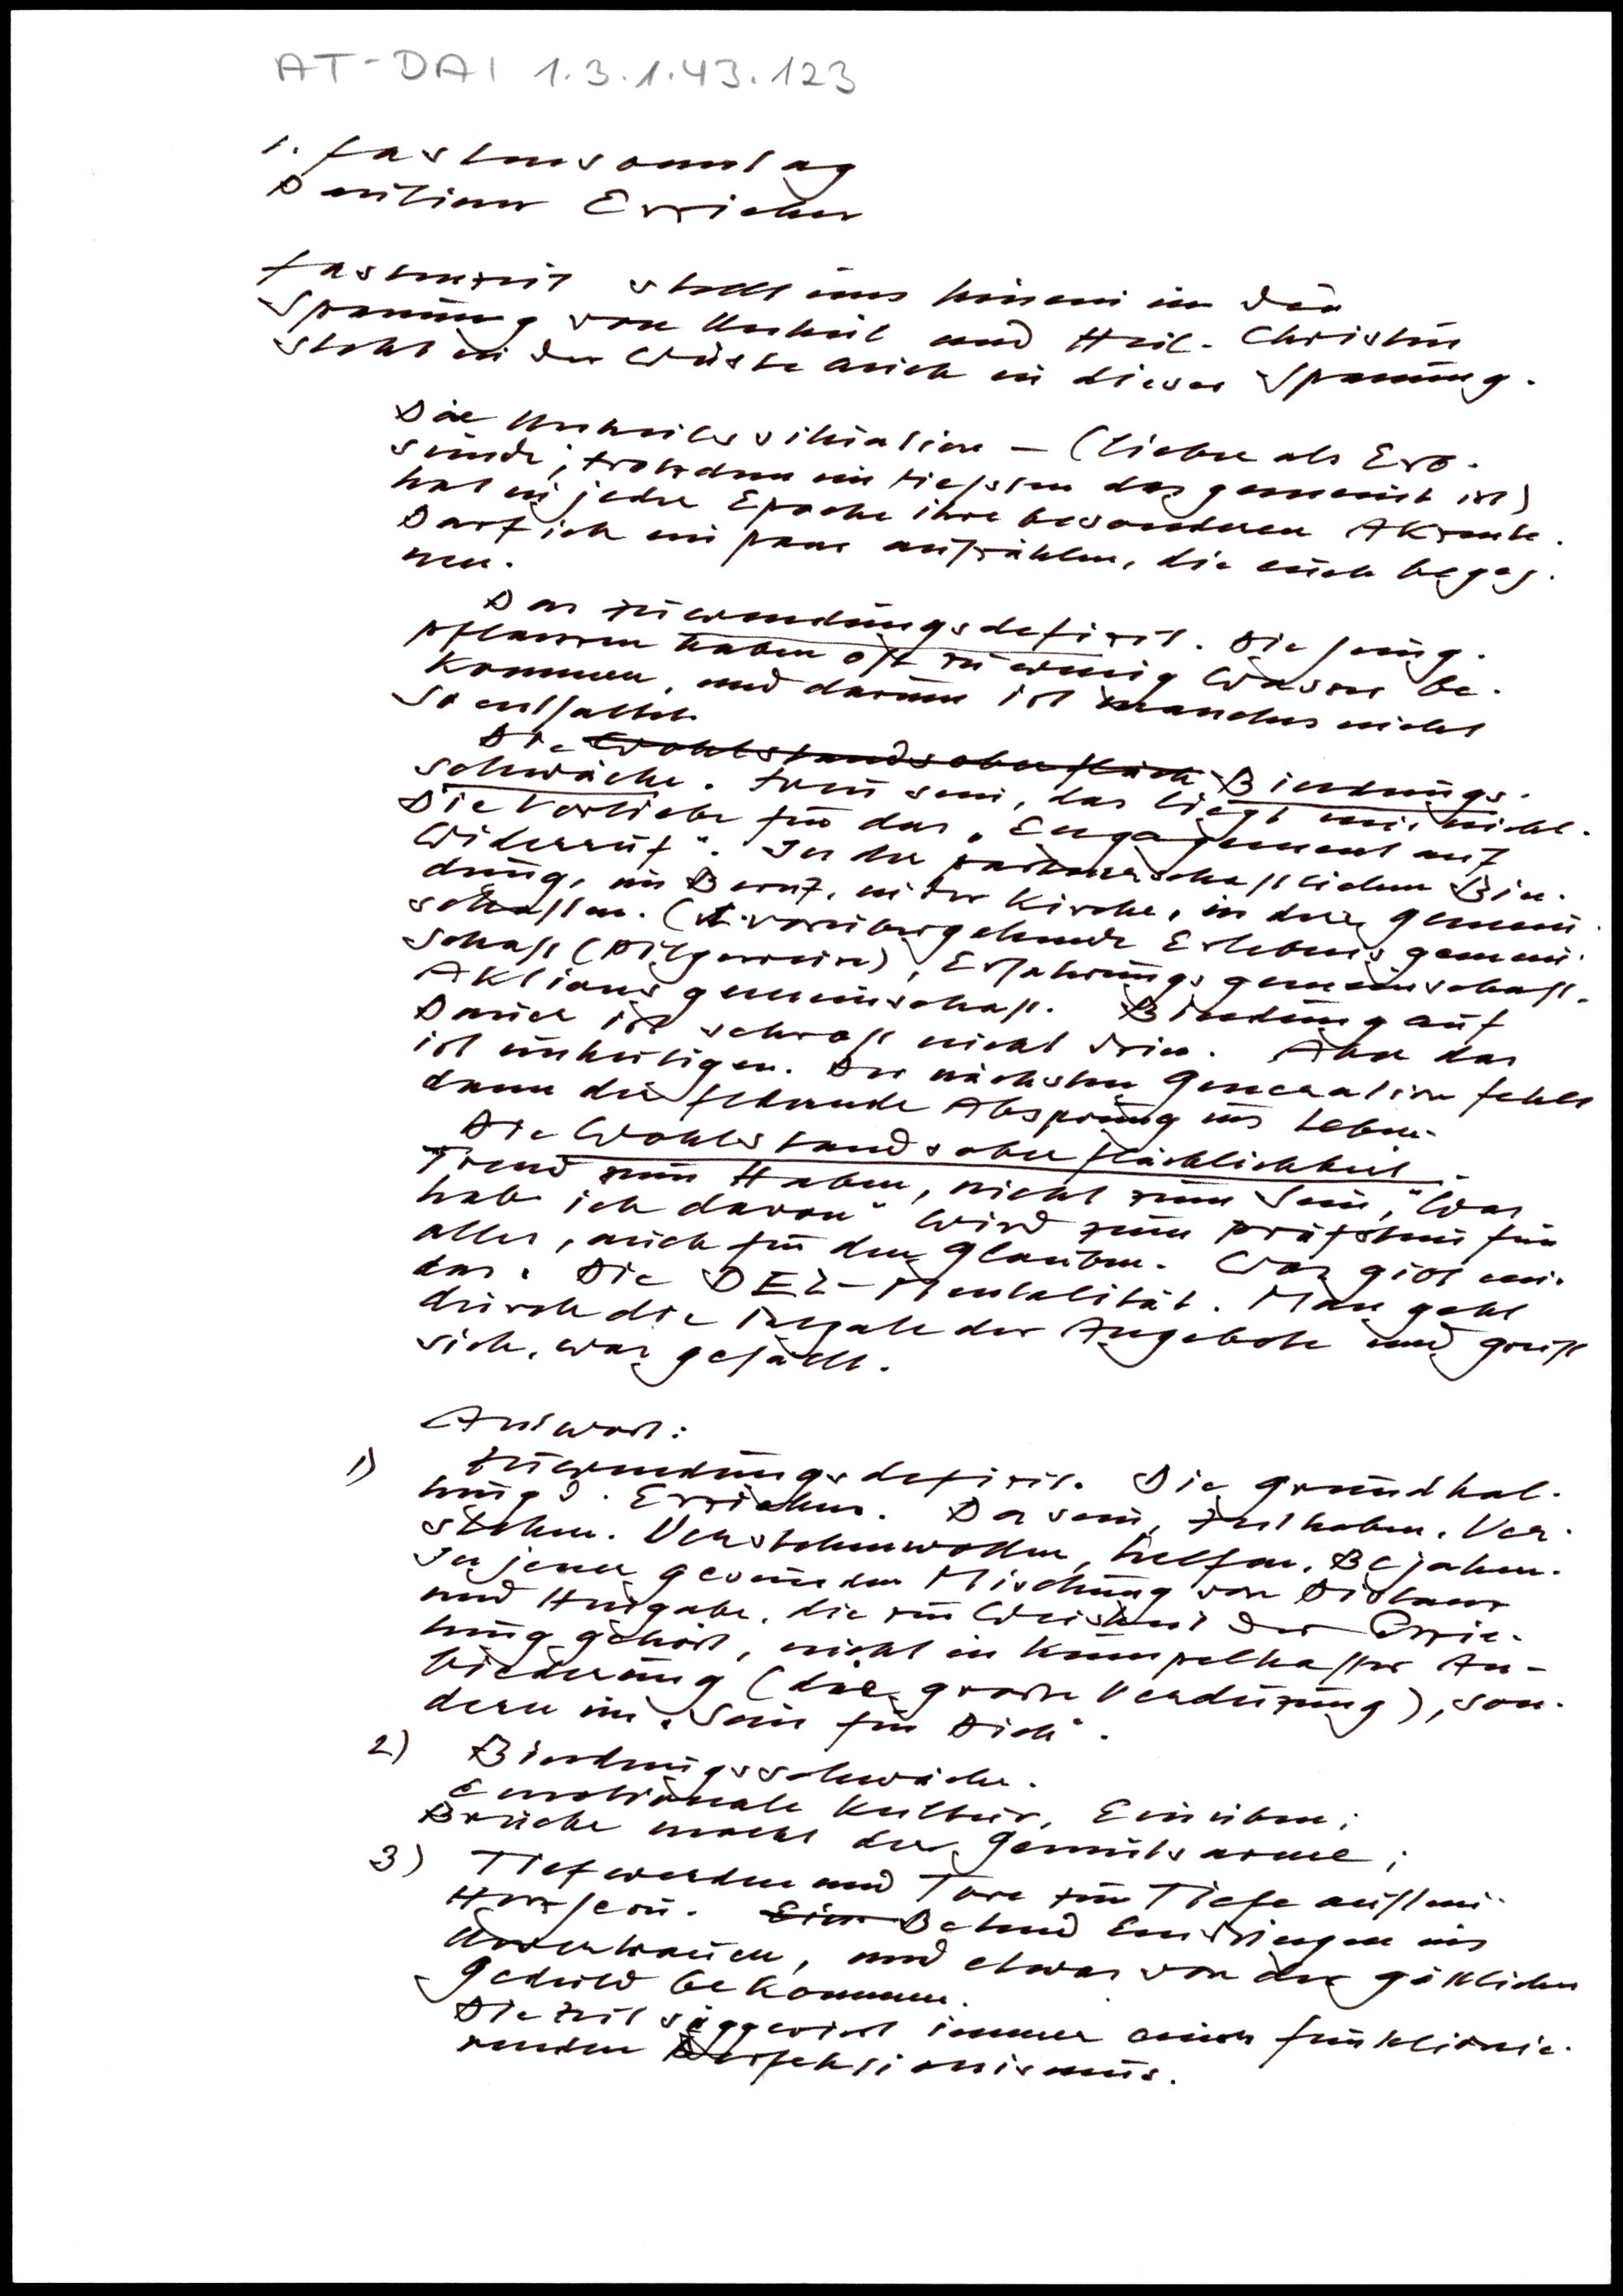 AT-DAI 1.3.1.43.123
1. Fastensonntag
Berliner Erzieher
Fastenzeit stellt uns hinein in die
Spannung von Unheil und Heil. Christus
steht in der Wüste auch in dieser Spannung.
Die Unheilssituation - (lieber als Erb-
sünde, trotzdem im tiefsten das gemeint ist)
hat in jeder Epoche ihre besonderen Akzente.
Darf ich ein paar aufzählen, die euch begeg-
nen.
Das Zuwendungsdefizit. Die Jung-
pflanzen haben oft zu wenig Wasser be-
kommen, und darum ist manches nicht
so entfaltet.
Die Wohlstandsoberfläch Bindungs-
schwäche. Treu sein, das liegt mir nicht.
Die Vorliebe für das "Engagement auf
Widerruf". In der partnerschaftlichen Bin-
dung, im Beruf, in der Kirche, in den Gemein-
schaften. (vorübergehende Erlebnisgemein-
schaft (Pilgerreise), Erfahrungsgemeinschaft,
Aktionsgemeinschaft. Bindung auf
Dauer ist schroff nicht drin. Aber das
ist Der nächsten Generation fehlt
dann der federnde Absprung ins Leben.
Die Wohlstandsoberflächlichkeit.
Trend zum Haben, nicht zum Sein, "Was
hab ich davon" wird zum Prüfstein für
alles, auch für den Glauben. Was gibt mir
das. Die DEZ-Mentalität. Man geht
durch die Regale der Angebote und greift
sich, was gefällt.
Antwort:
1) Zuwendungsdefizit. Die Grundhal-
tung d. Erziehers. Da sein, Zeit haben, Ver-
stehen. Verstehenwollen, helfen. Bejahen.
In jener gesunden Mischung von Distanz
und Hingabe, die zur Weisheit der Erzie-
hung gehört, nicht in kumpelhafter An-
biederung (die grosse Verduzung), son-
dern im "Sein für Dich".
2) Bindungsschwäche.
Emotionale Kultur, Einüben;
Brüche macht der Gemütsarme;
3) Tief werden und Tore zur Tiefe aufstmi
Herz Jesu. Ein Betend Eindringen ins
Urvertrauen, und etwas von der göttlichen
Geduld bekommen.
Die Zeit suggeriert immer einen funktionie-
renden Perfektionismus.